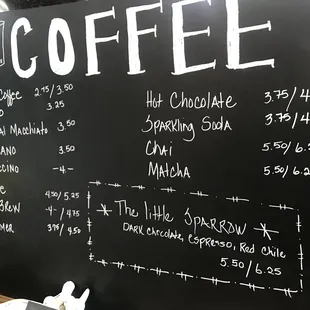 COFFEE
Coffee 2.75/3.50
3.25
Macchiato 3.50
3.50
-4-
4.50/5.25
Brew -4-/4.75
3.75/4.50
Hot Chocolate 3.75/4
Sparkling Soda 3.75/4
Chai 5.50/6.
Matcha 5.50/6.
The little Sparrow
Dark chocolate, espresso, Red chile
5.50/6.25